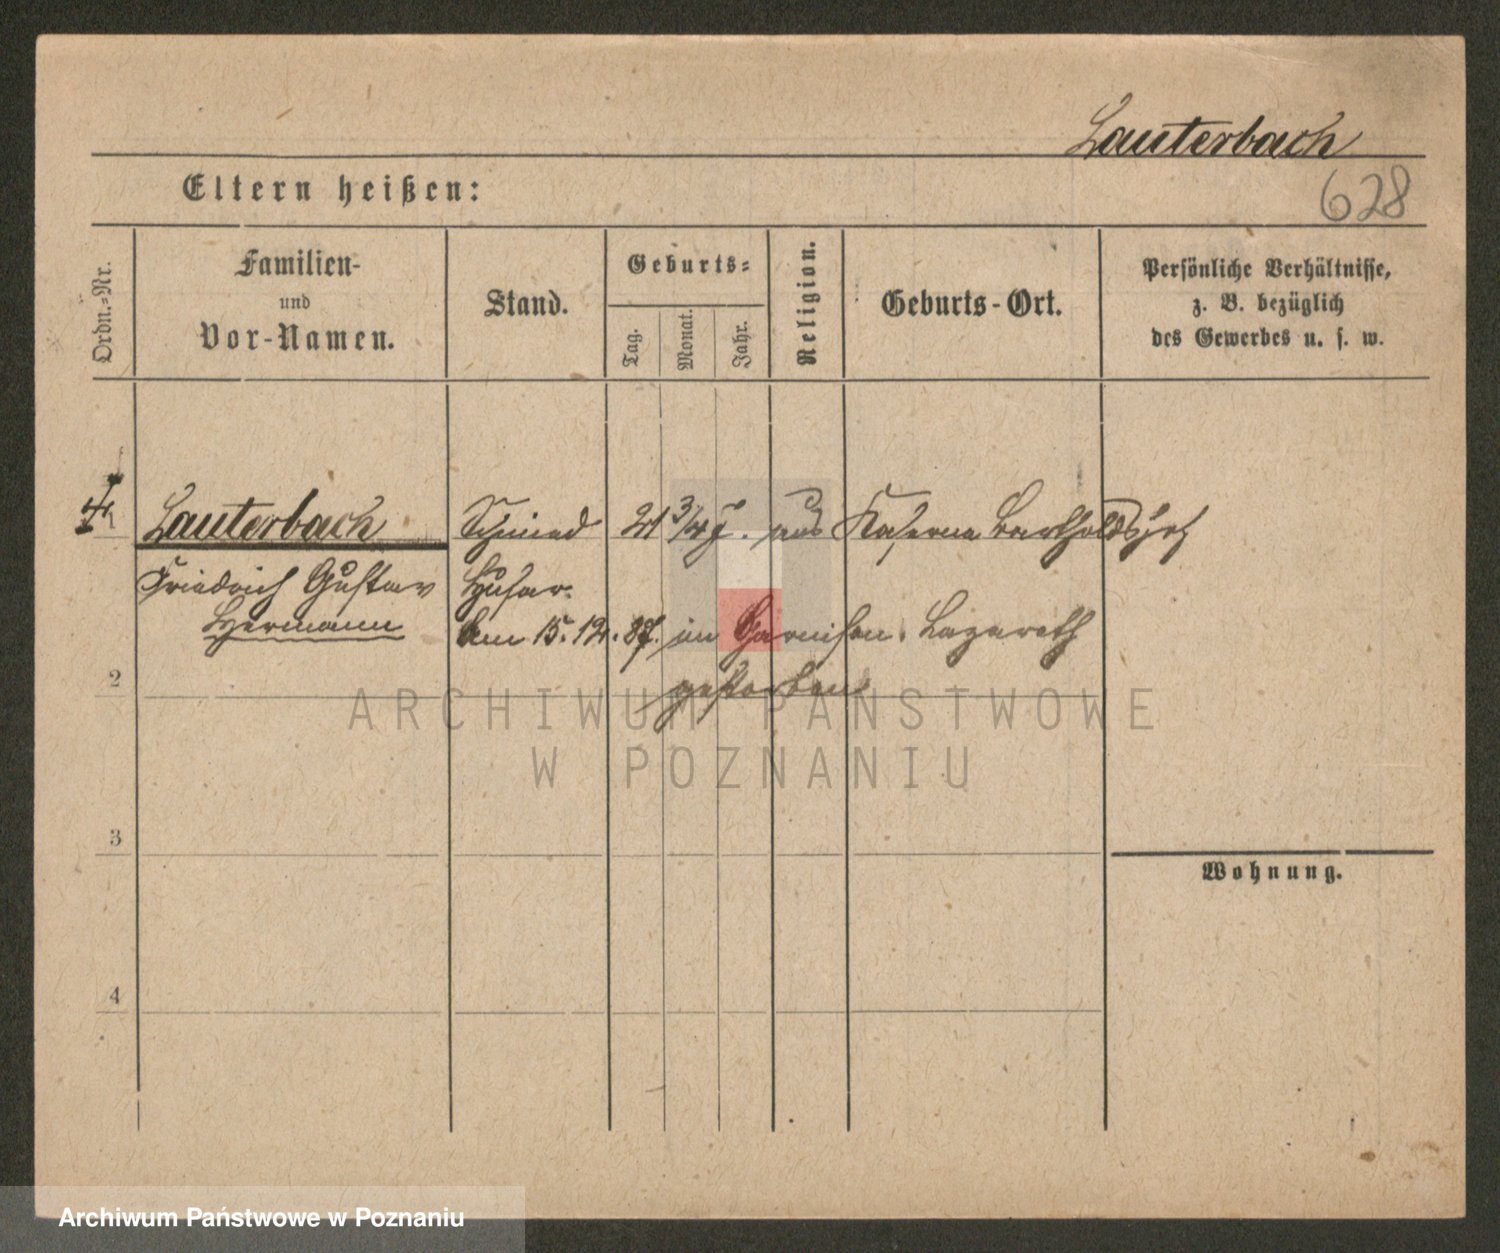 Lauterbach
Eltern heißen:
628
Ordn.-Nr.
Familien-
und
Vor-Namen.
Stand.
Geburts-
Tag.
Monat.
Jahr.
Religion.
Geburts-Ort.
Persönliche Verhältnisse,
z. B. bezüglich
des Gewerbes u. s. w.
1 Lauterbach Schmied 21 3/4 J. aus Kaserne Bartholdshof
Friedrich Gustav Husar
Hermann Am 15.12.87. im Garnison-Lazareth
2 gestorben
ARCHIWUM PAŃSTWOWE
W POZNANIU
3
Wohnung.
4
Archiwum Państwowe w Poznaniu